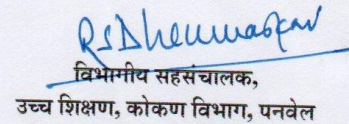 RSDhenwaskar
विभागीय सहसंचालक,
उच्च शिक्षण, कोकण विभाग, पनवेल